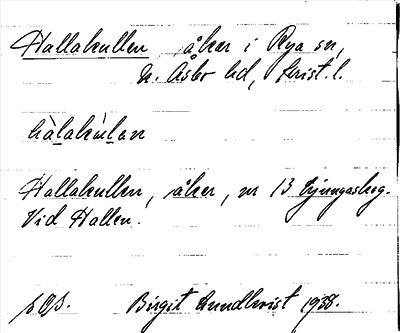 Hallakullen åker i Rya sn,
N. Åsbo hd, Krist. l.
hàlakùlən
Hallakullen, åker, nr 13 Ljungaskog.
Vid Hallen.
s. 01.
Birgit Lundkvist 1938.